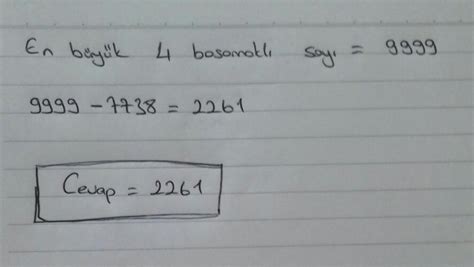 En büyük 4 basamaklı sayı = 9999
9999 - 7738 = 2261
Cevap = 2261